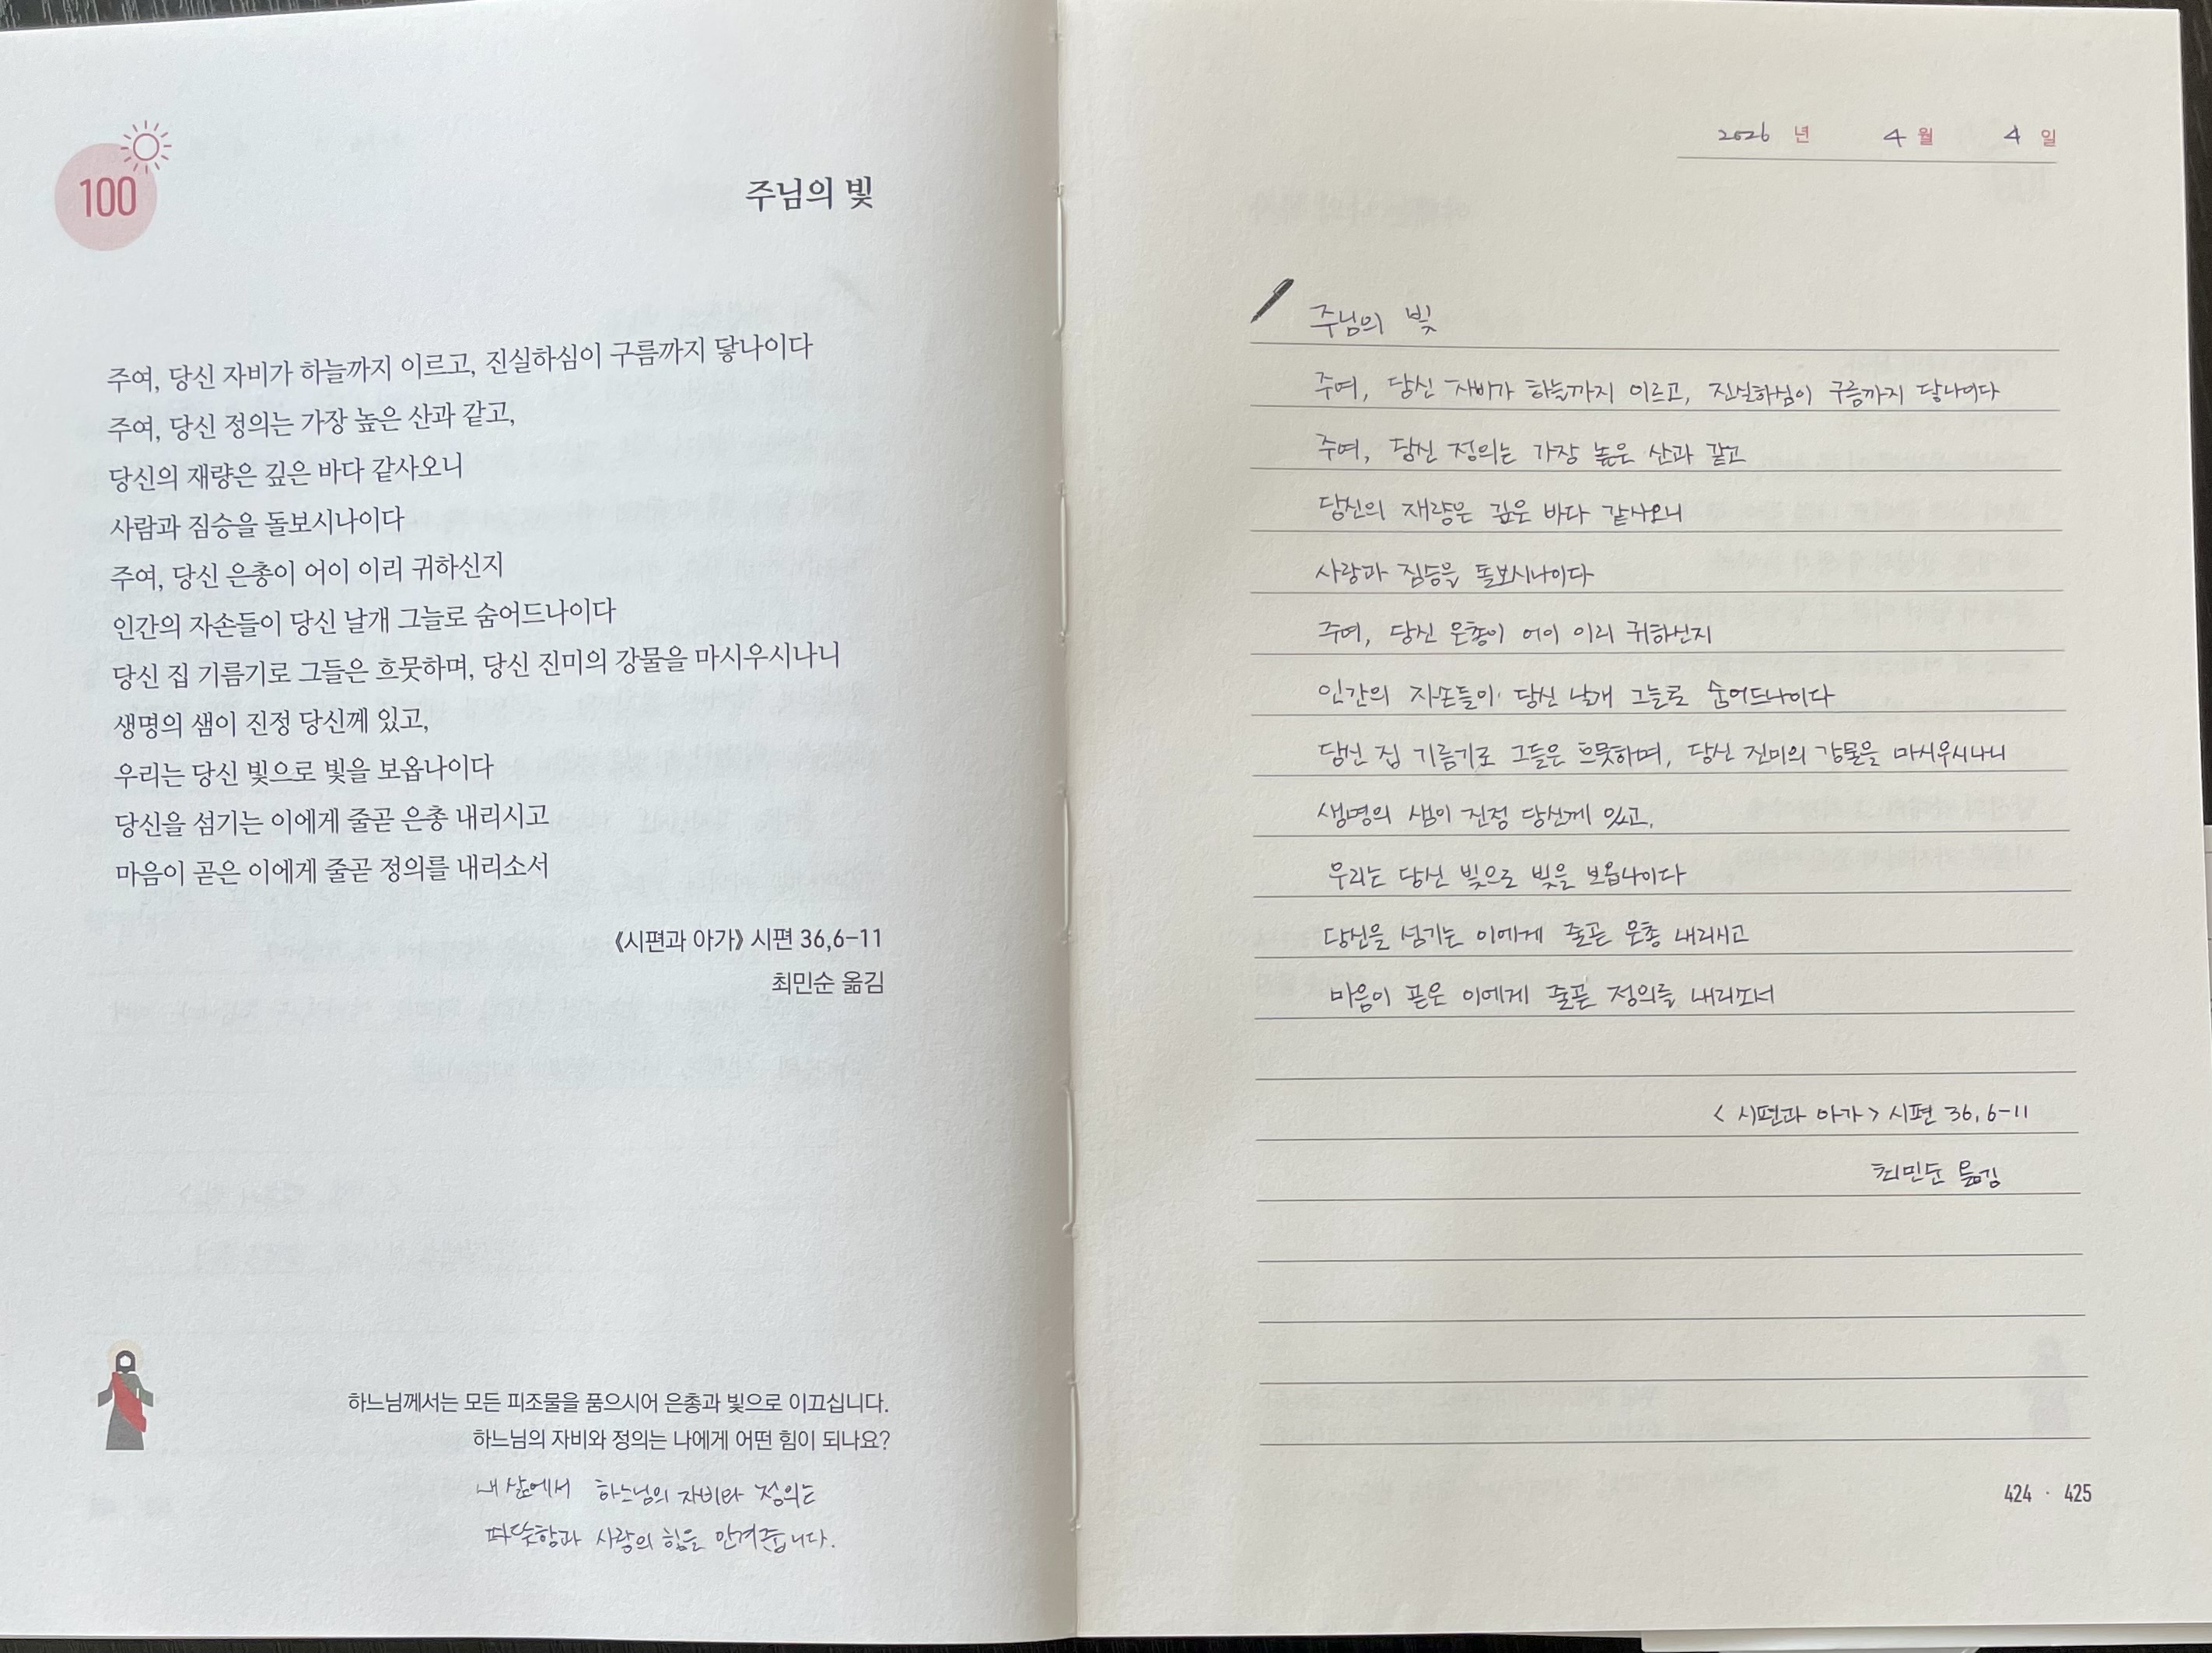 100
주님의 빛
주여, 당신 자비가 하늘까지 이르고, 진실하심이 구름까지 닿나이다
주여, 당신 정의는 가장 높은 산과 같고,
당신의 재량은 깊은 바다 같사오니
사람과 짐승을 돌보시나이다
주여, 당신 은총이 어이 이리 귀하신지
인간의 자손들이 당신 날개 그늘로 숨어드나이다
당신 집 기름기로 그들은 흐뭇하며, 당신 진미의 강물을 마시우시나니
생명의 샘이 진정 당신께 있고,
우리는 당신 빛으로 빛을 보옵나이다
당신을 섬기는 이에게 줄곧 은총 내리시고
마음이 곧은 이에게 줄곧 정의를 내리소서
《시편과 아가》 시편 36,6-11
최민순 옮김
하느님께서는 모든 피조물을 품으시어 은총과 빛으로 이끄십니다.
하느님의 자비와 정의는 나에게 어떤 힘이 되나요?
내 삶에서 하느님의 자비와 정의는
따뜻함과 사랑의 힘을 안겨줍니다.
2026 년 4 월 4 일
주님의 빛
주여, 당신 자비가 하늘까지 이르고, 진실하심이 구름까지 닿나이다
주여, 당신 정의는 가장 높은 산과 같고
당신의 재량은 깊은 바다 같사오니
사랑과 짐승을 돌보시나이다
주여, 당신 은총이 어이 이리 귀하신지
인간의 자손들이 당신 날개 그늘로 숨어드나이다
당신 집 기름기로 그들은 흐뭇하며, 당신 진미의 강물을 마시우시나니
생명의 샘이 진정 당신께 있고,
우리는 당신 빛으로 빛을 보옵나이다
당신을 섬기는 이에게 줄곧 은총 내리시고
마음이 곧은 이에게 줄곧 정의를 내리소서
< 시편과 아가 > 시편 36, 6-11
최민순 옮김
424 · 425